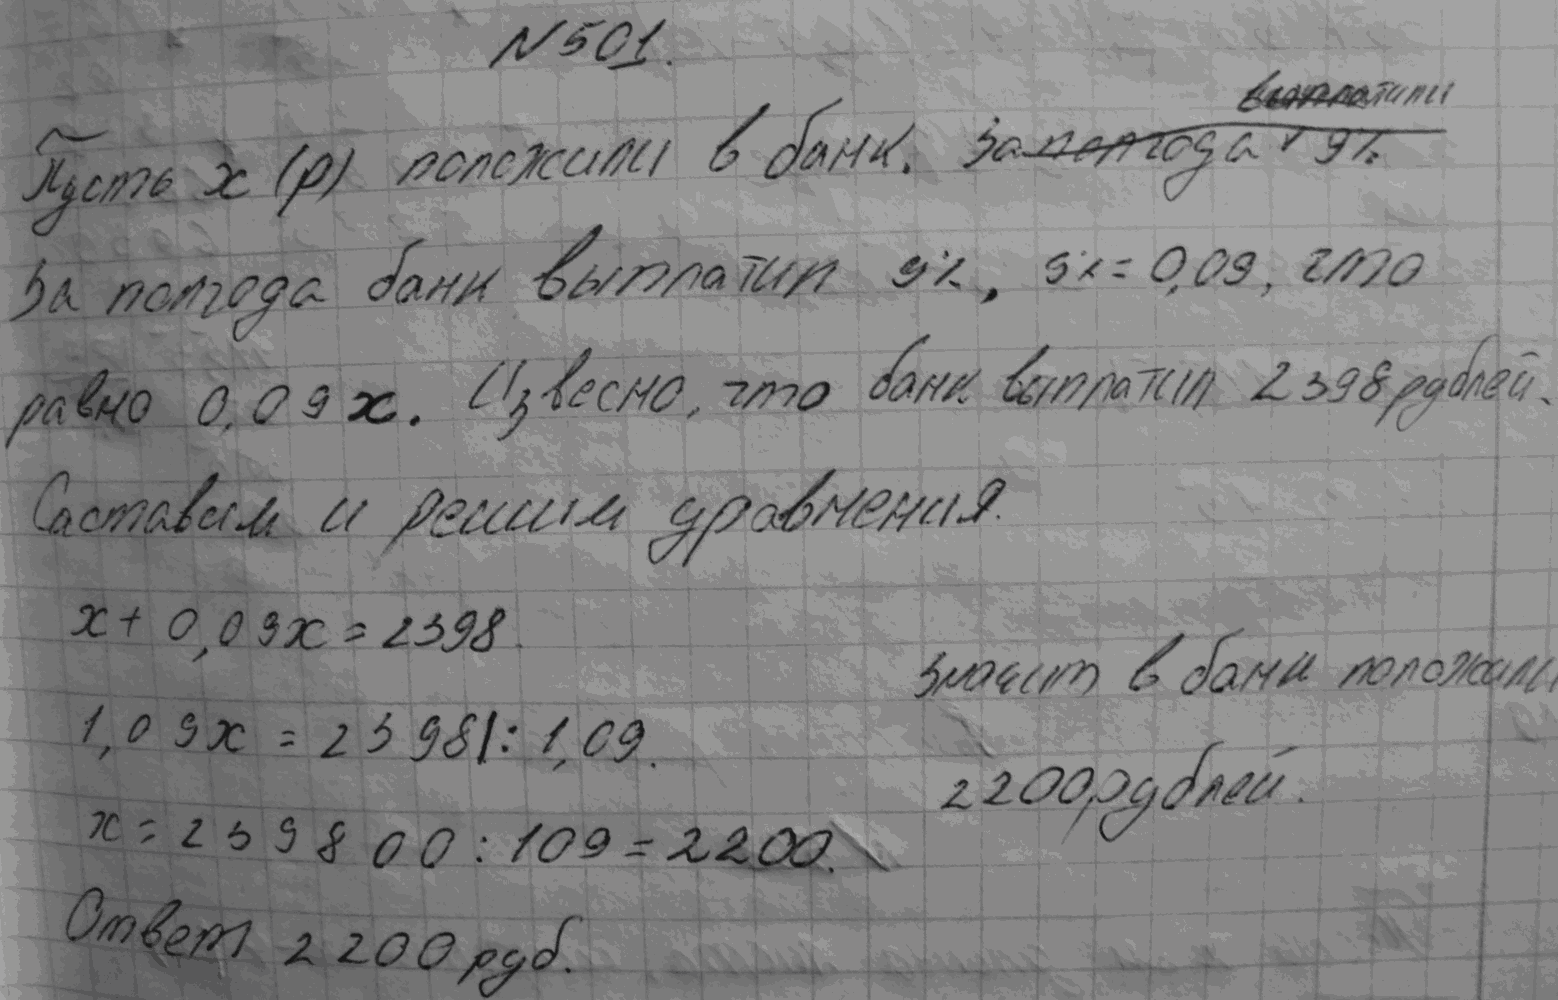 N 501.
Пусть x (р) положили в банк. За полгода 9%
выплатили
За полгода банк выплатил 9%, 9% = 0,09, что
равно 0,09x. Извесно, что банк выплатил 2398 рублей.
Саставим и решим уравнения.
x + 0,09x = 2398.
1,09x = 2398 |: 1,09.
x = 239800 : 109 = 2200.
Значит в банк положили
2200 рублей.
Ответ 2200 руб.